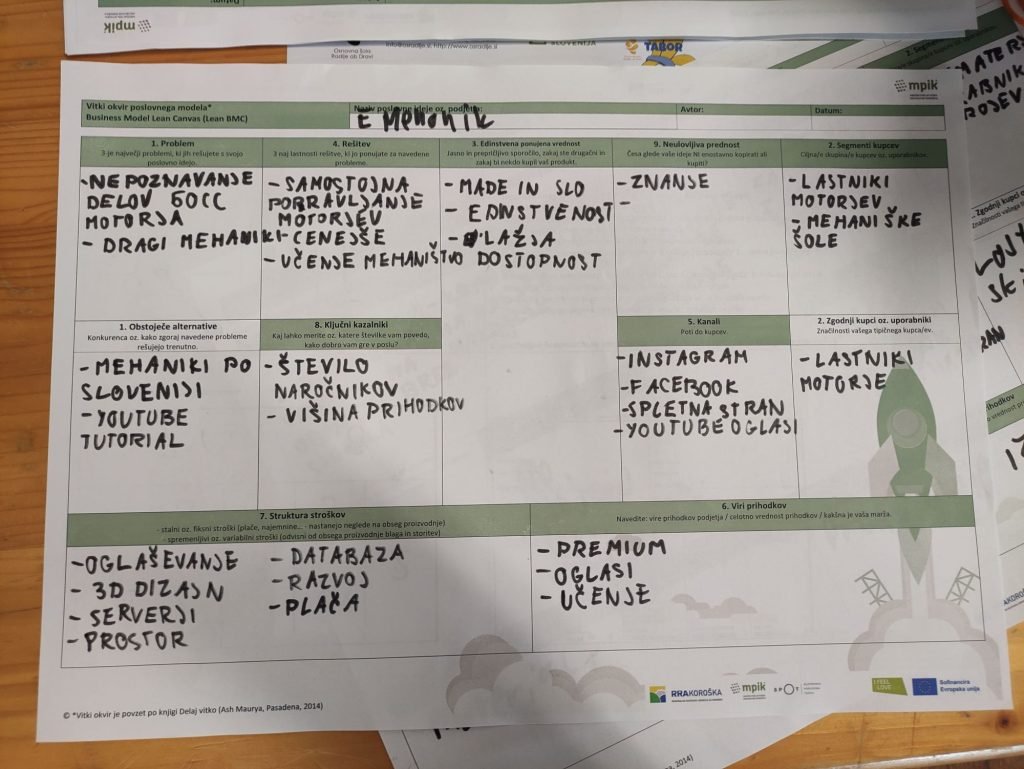 mpik
Osnovna šola
Radlje ob Dravi
info@osradlje.si, http://www.osradlje.si
SLOVENIJA
TABOR
mpik
Vitki okvir poslovnega modela*
Business Model Lean Canvas (Lean BMC)
Naziv poslovne ideje oz. podjetja:
E MEHANIK
Avtor:
Datum:
1. Problem
3-je največji problemi, ki jih rešujete s svojo
poslovno idejo.
-NEPOZNAVANJE
DELOV 50CC
MOTORJA
- DRAGI MEHANIKI
4. Rešitev
3 naj lastnosti rešitve, ki jo ponujate za navedene
probleme.
- SAMOSTOJNA
POPRAVLJANJE
MOTORJEV
- CENEJŠE
- UČENJE MEHANIŠTVO
3. Edinstvena ponujena vrednost
Jasno in prepričljivo sporočilo, zakaj ste drugačni in
zakaj bi nekdo kupil vaš produkt.
- MADE IN SLO
- EDINSTVENOST
- LAŽJA
DOSTOPNOST
9. Neulovljiva prednost
Česa glede vaše ideje NI enostavno kopirati ali
kupiti?
- ZNANJE
-
2. Segmenti kupcev
Ciljna/e skupina/e kupcev oz. uporabnikov.
- LASTNIKI
MOTORJEV
- MEHANIŠKE
ŠOLE
1. Obstoječe alternative
Konkurenca oz. kako zgoraj navedene probleme
rešujejo trenutno.
- MEHANIKI PO
SLOVENIJI
- YOUTUBE
TUTORIAL
8. Ključni kazalniki
Kaj lahko merite oz. katere številke vam povedo,
kako dobro vam gre v poslu?
- ŠTEVILO
NAROČNIKOV
- VIŠINA PRIHODKOV
5. Kanali
Poti do kupcev.
-INSTAGRAM
-FACEBOOK
-SPLETNA STRAN
-YOUTUBE OGLASI
2. Zgodnji kupci oz. uporabniki
Značilnosti vašega tipičnega kupca/ev.
- LASTNIKI
MOTORJE
7. Struktura stroškov
- stalni oz. fiksni stroški (plače, najemnine... - nastanejo neglede na obseg proizvodnje)
- spremenljivi oz. variabilni stroški (odvisni od obsega proizvodnje blaga in storitev)
-OGLAŠEVANJE
- 3D DIZAJN
- SERVERJI
-PROSTOR
- DATABAZA
- RAZVOJ
- PLAČA
6. Viri prihodkov
Navedite: vire prihodkov podjetja / celotno vrednost prihodkov / kakšna je vaša marža.
- PREMIUM
- OGLASI
- UČENJE
RRA KOROŠKA
mpik
SPOT
I FEEL
SLOVENIA
Sofinancira
Evropska unija
© *Vitki okvir je povzet po knjigi Delaj vitko (Ash Maurya, Pasadena, 2014)